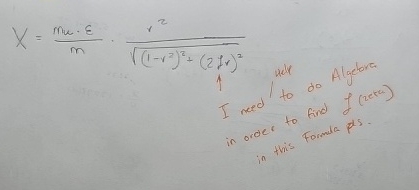 X = mu·ε / m · r² / √((1-r²)² + (2ζr)²
↑
I need Help to do Algebra
in order to find ζ (zeta)
in this Formula pls.